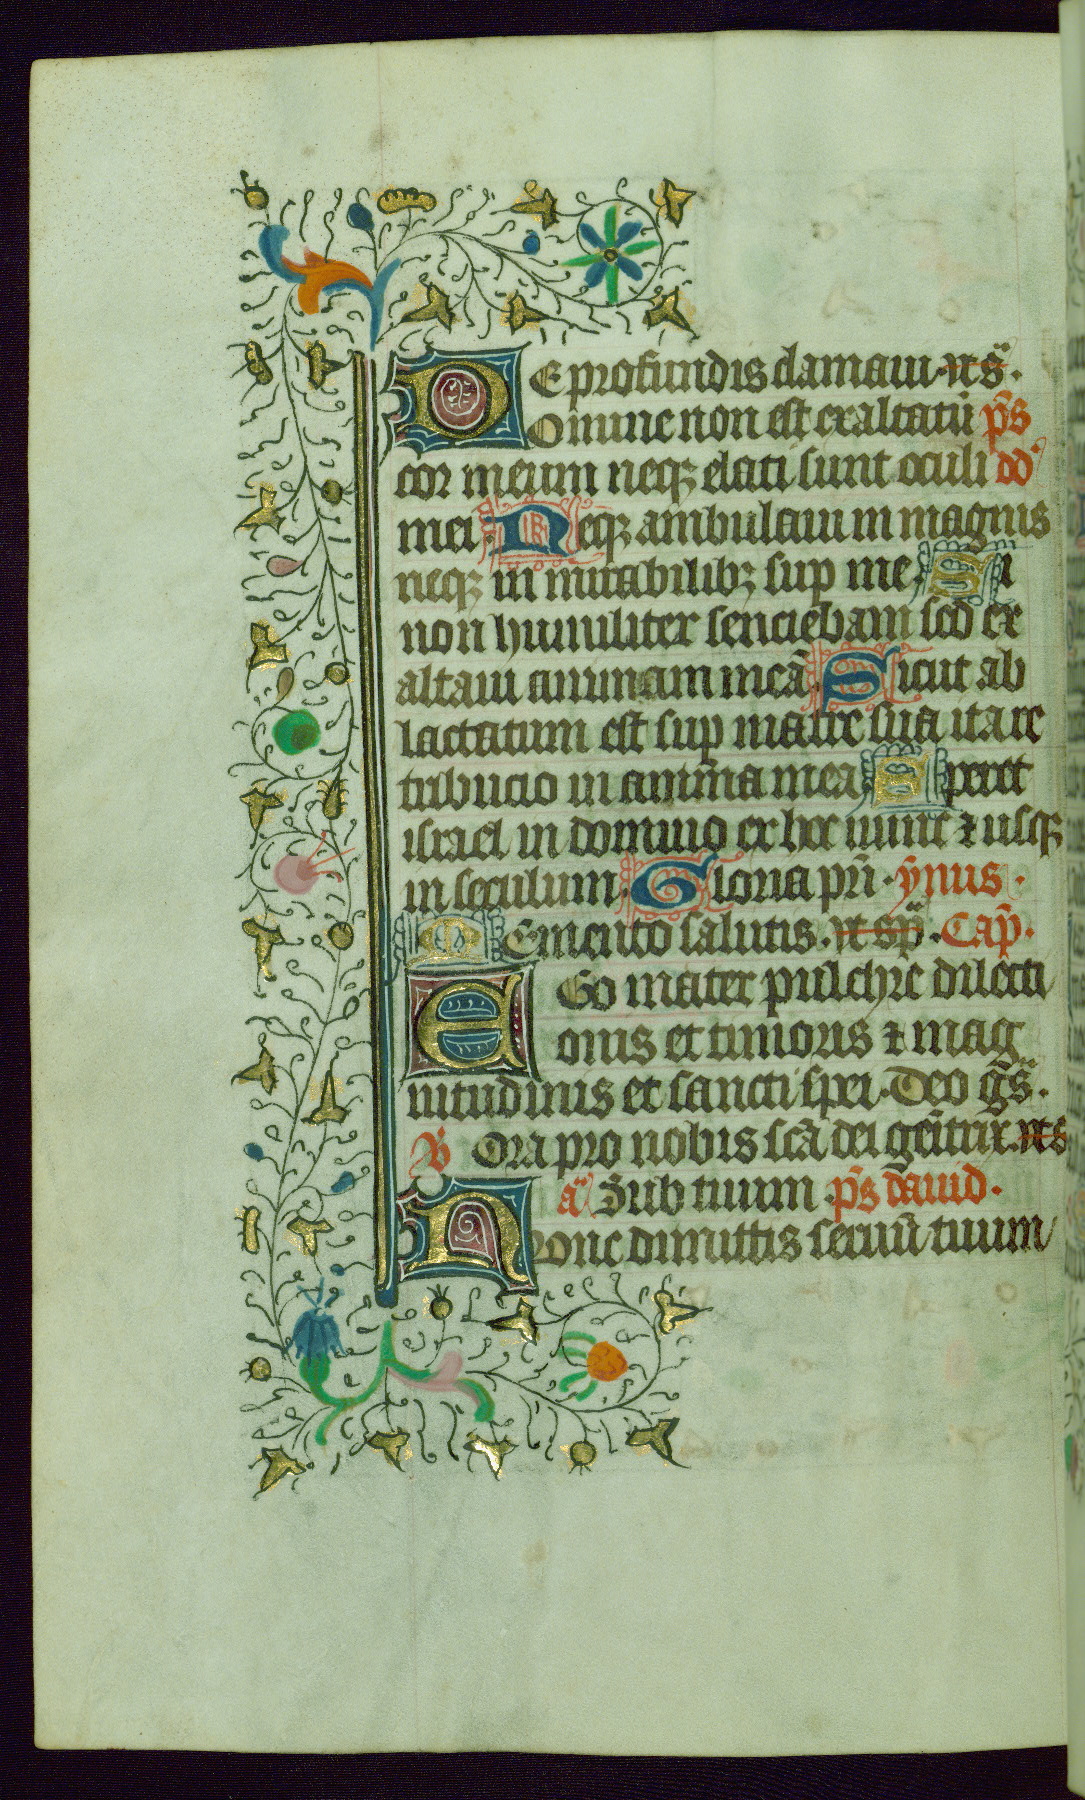 DE profundis clamaui. ut s̄.
Domine non est exaltatū p̄s
cor meum neqꝫ elati sunt oculi dd
mei. Neqꝫ ambulaui in magnis
neqꝫ in mirabilibꝫ sup me. Si
non humiliter senciebam sed ex
altaui animam meā. Sicut ab
lactatum est sup matre sua ita re
tribucio in anima mea. Speret
israel in domino ex hoc nunc ⁊ usqꝫ
in seculum. Gloria pr̄i. ym̄us.
Memento salutis. ut sp̄. Cap̄.
EGo mater pulchre dilecti
onis et timoris ⁊ mag
nitudinis et sancti spei. Deo gr̄s.
℣ Ora pro nobis scā dei gēitrix. ut s
a Sub tuum p̄s dauid.
Nvnc dimittis seruū tuum